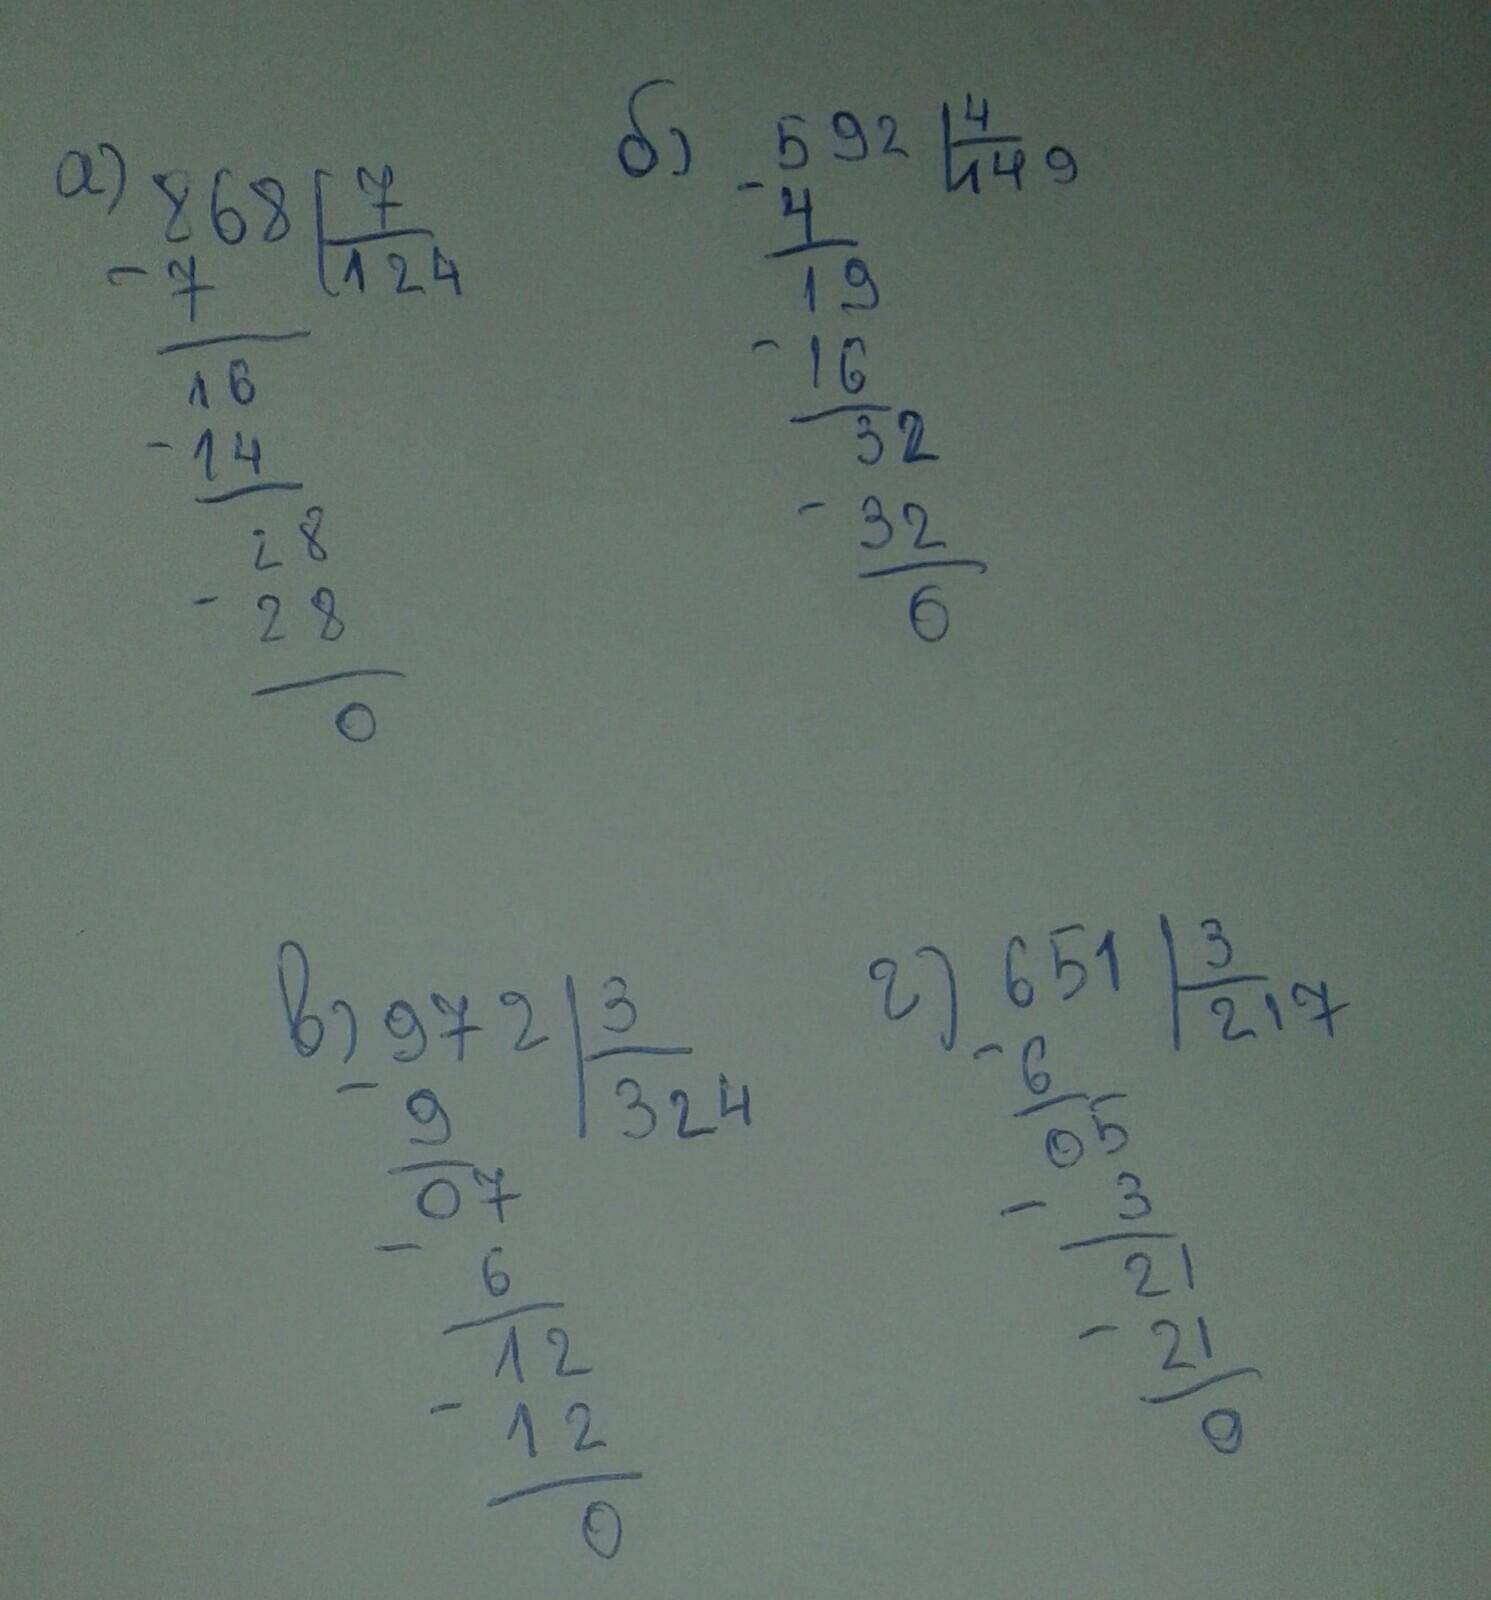 а) 868 | 7
- 7 | 124
16
- 14
28
- 28
0
б) 592 | 4
- 4 | 149
19
- 16
32
- 32
0
в) 972 | 3
- 9 | 324
07
- 6
12
- 12
0
г) 651 | 3
- 6 | 217
05
- 3
21
- 21
0